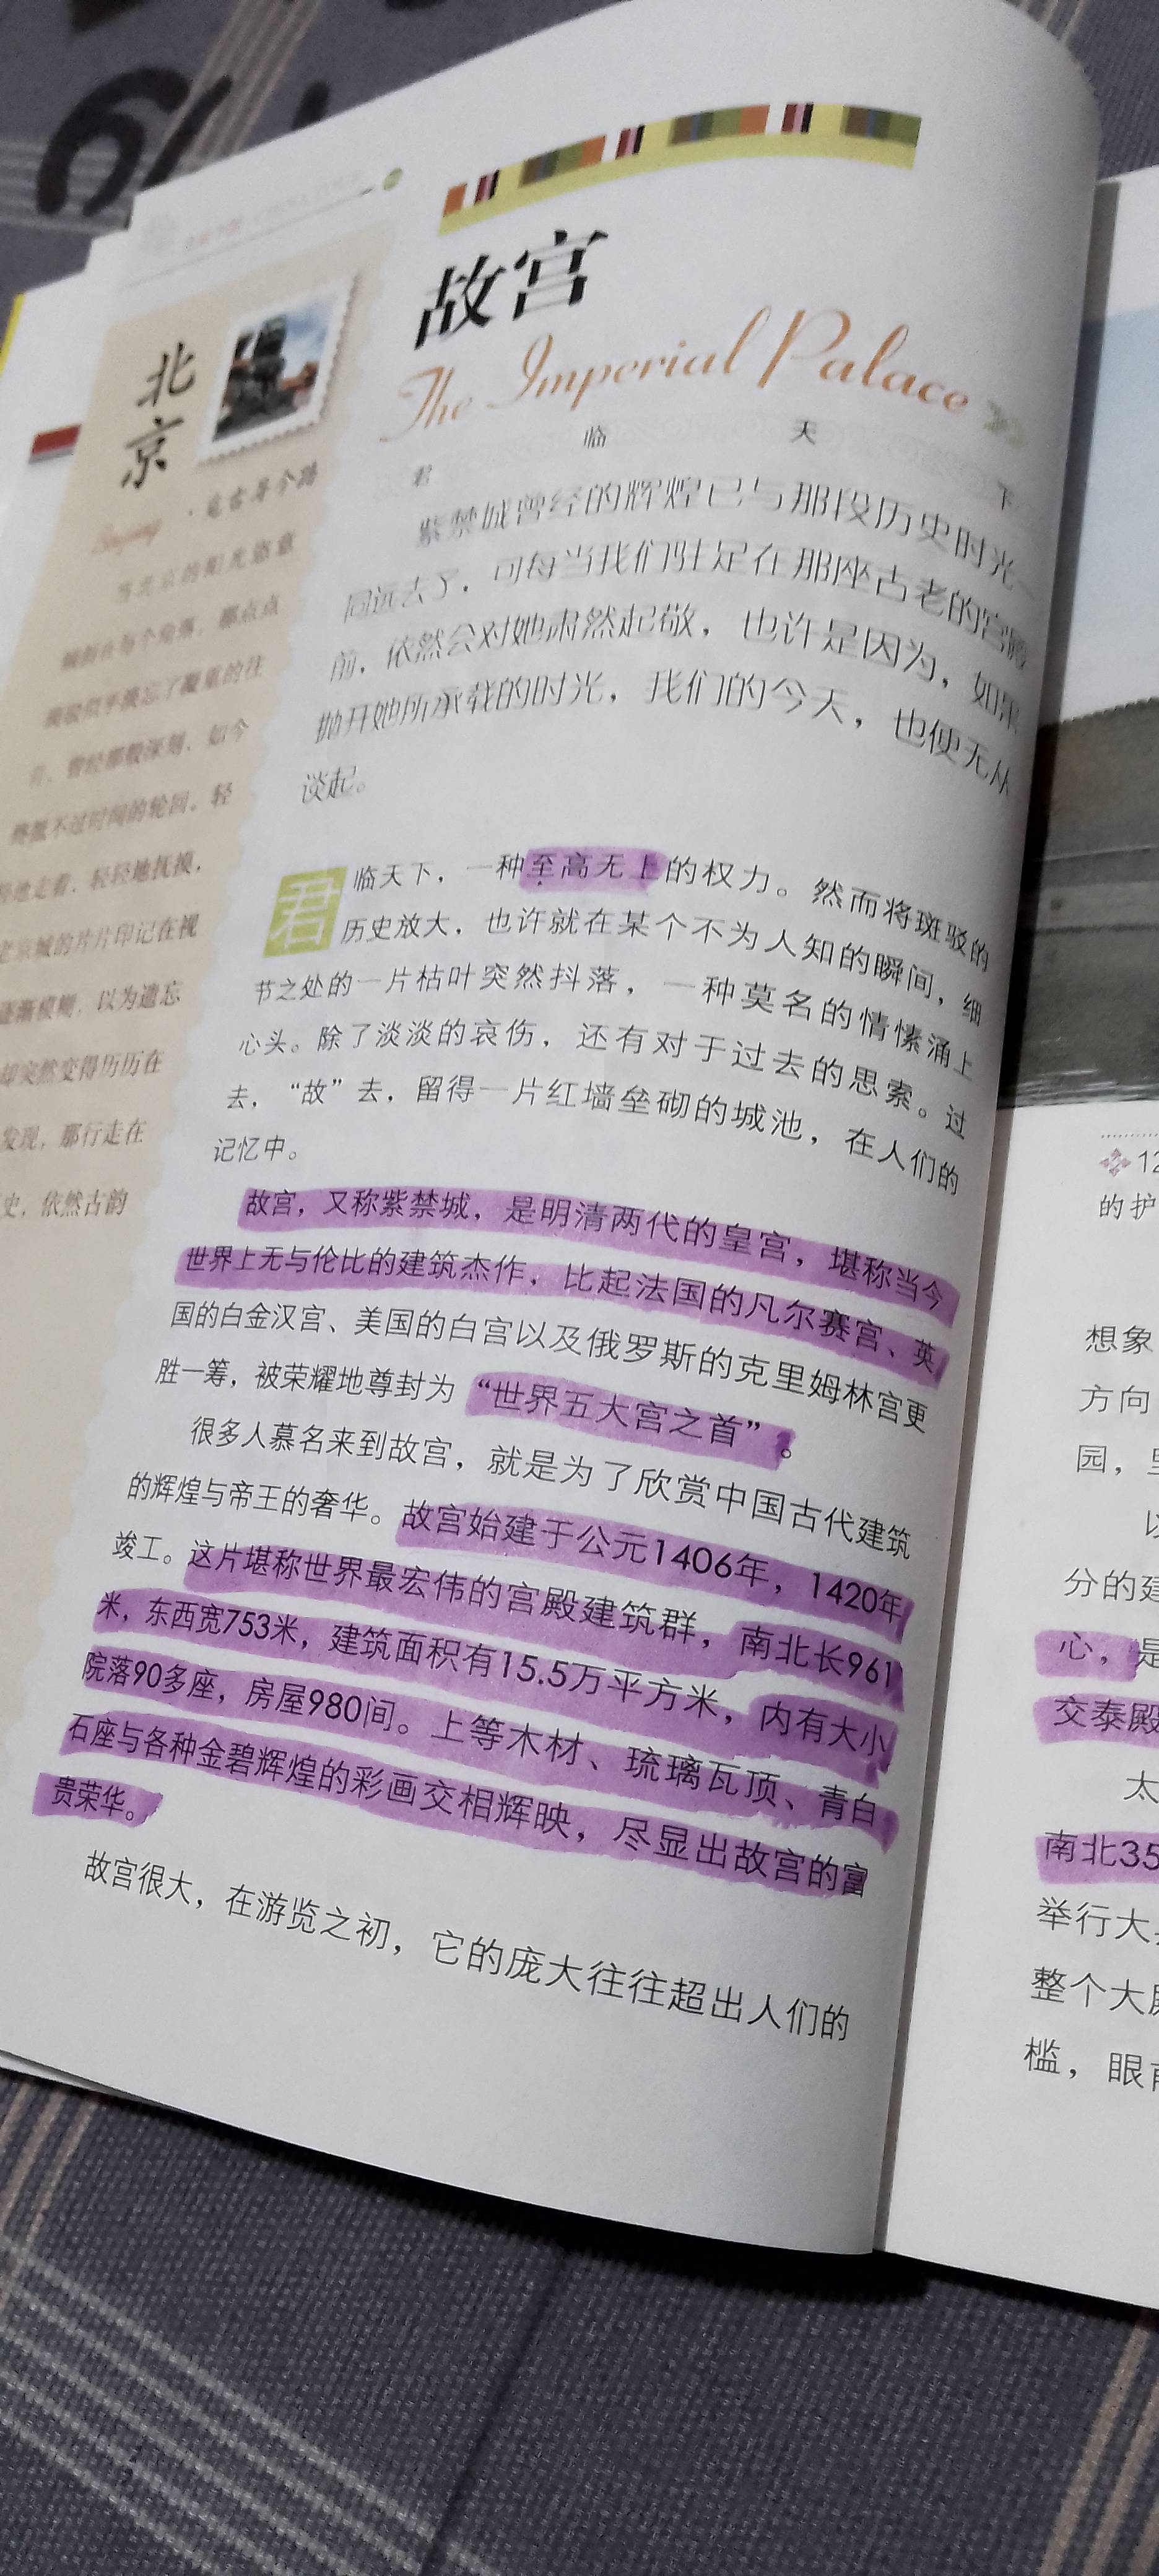 故宫
The Imperial Palace
君 临 天 下
紫禁城曾经的辉煌已与那段历史时光一
同远去了，可每当我们驻足在那座古老的宫殿
前，依然会对她肃然起敬，也许是因为，如果
抛开她所承载的时光，我们的今天，也便无从
谈起。
君临天下，一种至高无上的权力。然而将斑驳的
历史放大，也许就在某个不为人知的瞬间，细
节之处的一片枯叶突然抖落，一种莫名的情愫涌上
心头。除了淡淡的哀伤，还有对于过去的思索。过
去，“故”去，留得一片红墙垒砌的城池，在人们的
记忆中。
故宫，又称紫禁城，是明清两代的皇宫，堪称当今
世界上无与伦比的建筑杰作，比起法国的凡尔赛宫、英
国的白金汉宫、美国的白宫以及俄罗斯的克里姆林宫更
胜一筹，被荣耀地尊封为“世界五大宫之首”。
很多人慕名来到故宫，就是为了欣赏中国古代建筑
的辉煌与帝王的奢华。故宫始建于公元1406年，1420年
竣工。这片堪称世界最宏伟的宫殿建筑群，南北长961
米，东西宽753米，建筑面积有15.5万平方米，内有大小
院落90多座，房屋980间。上等木材、琉璃瓦顶、青白
石座与各种金碧辉煌的彩画交相辉映，尽显出故宫的富
贵荣华。
故宫很大，在游览之初，它的庞大往往超出人们的
北京
Beijing
当北京的阳光恣意
倾洒在每个角落，那点点
往
事，曾经那般深刻，如今
终抵不过时间的轮回。轻
轻地走着，轻轻地抚摸，
老京城的片片印记在视
逐渐模糊，以为遗忘
却突然变得历历在
发现，那行走在
史，依然古韵
12
的护
想象
方向
园，
分的建
心，是
交泰殿
太
南北35
举行大
整个大殿
槛，眼前